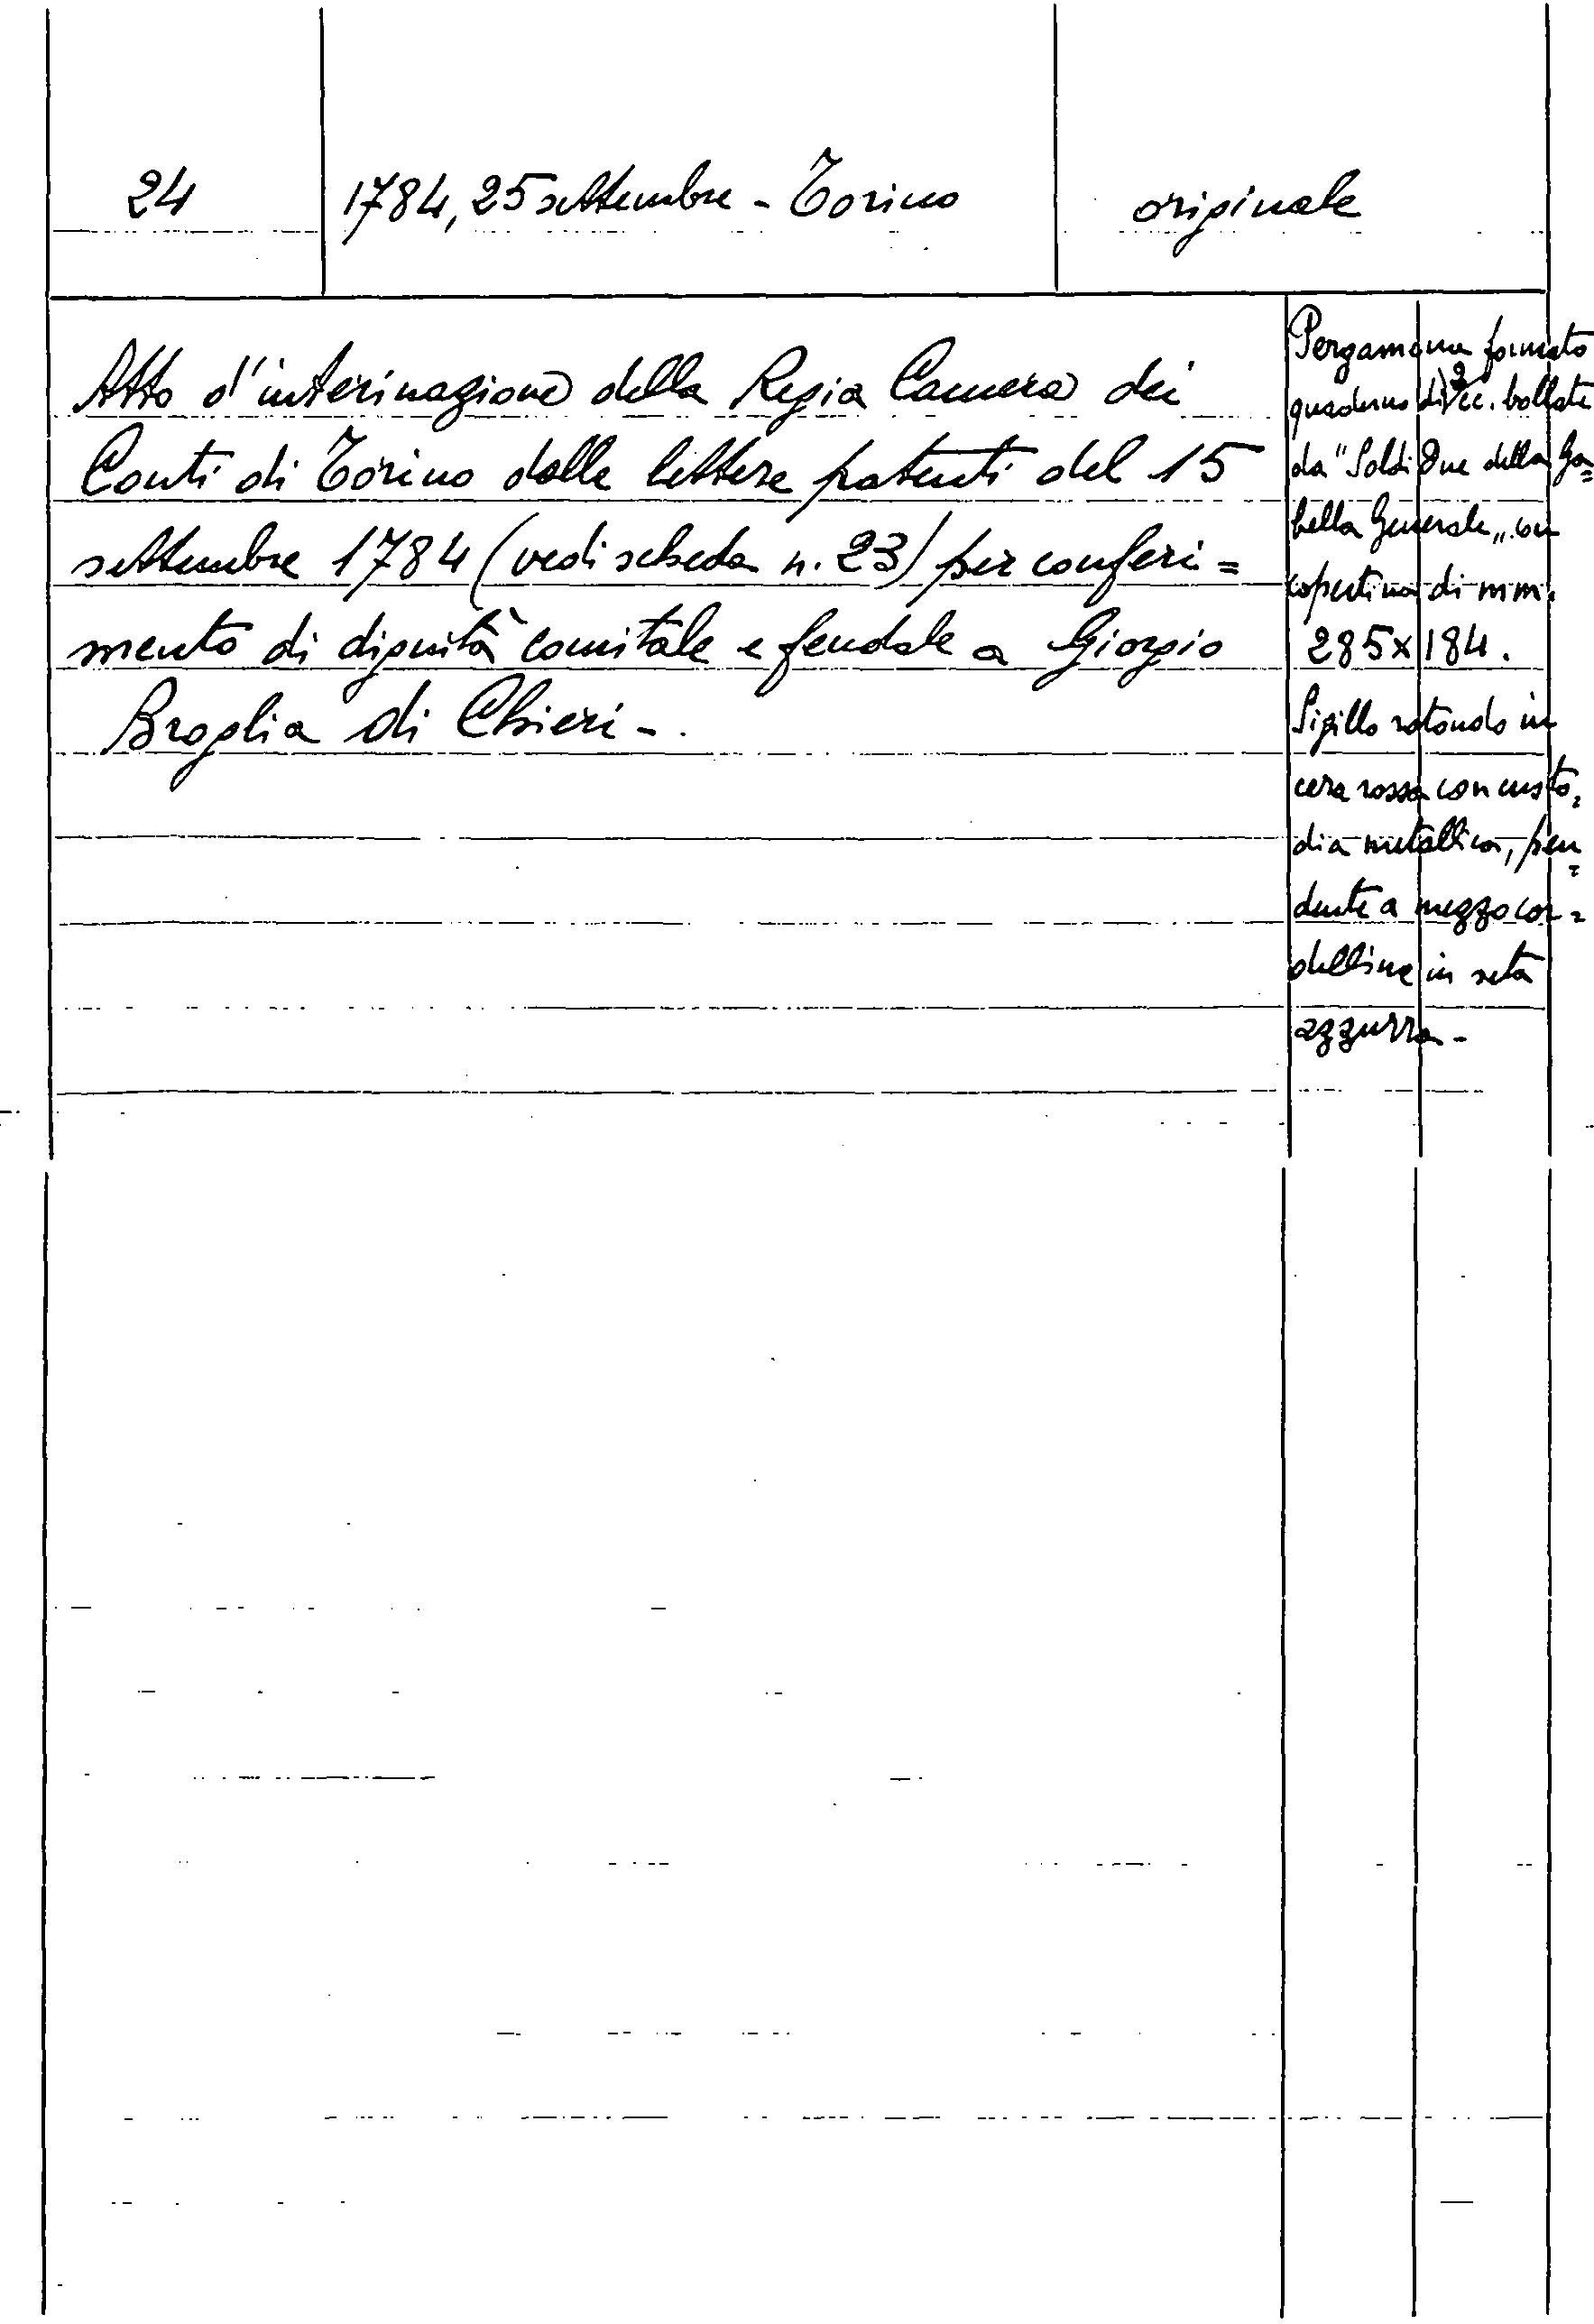 24
1784, 25 settembre - Torino
originale
Atto d'interinazione della Regia Camera dei
Conti di Torino delle lettere patenti del 15
settembre 1784 (vedi scheda n. 23) per conferi=
mento di dignità comitale e feudale a Giorgio
Broglia di Chieri -
Pergamena formato
quaderno di 2 cc. bollate
da "Soldi Due della Ga=
bella Generale,, con
copertina di mm.
285x184.
Sigillo rotondo in
cera rossa con custo=
dia metallica, pen=
dente a mezzo cor=
delline in seta
azzurra -